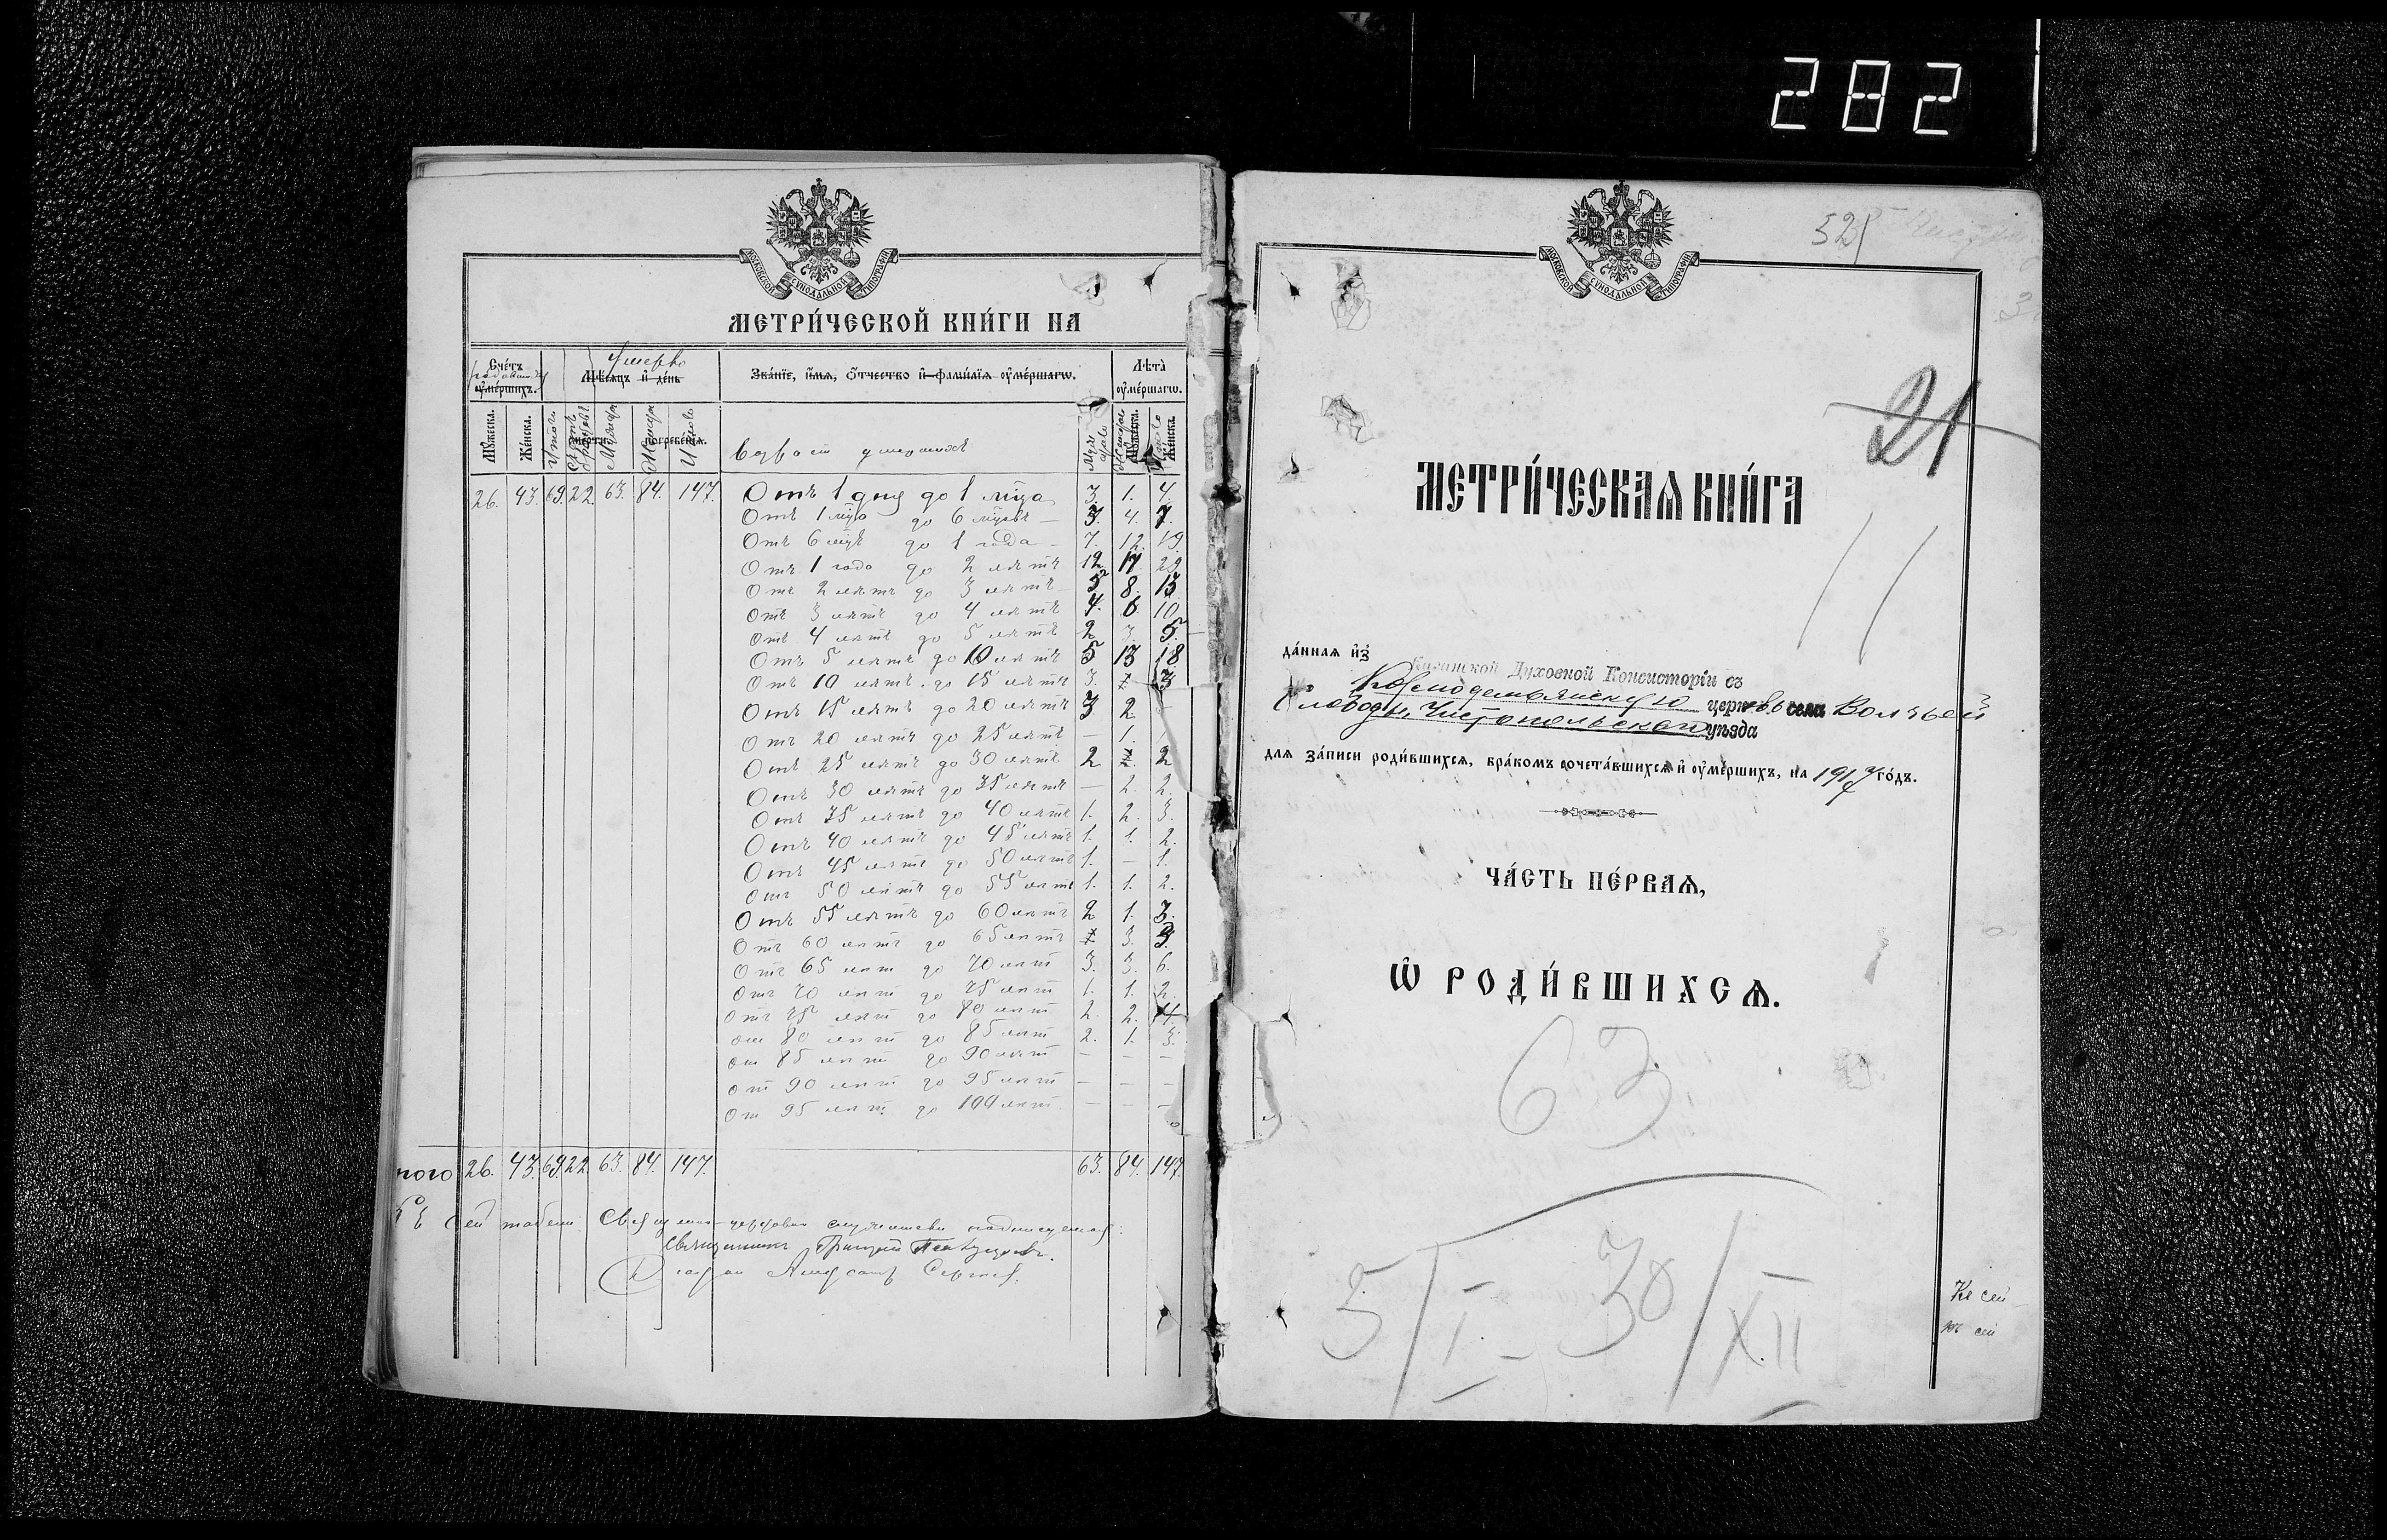 282
МОСКОВСКОЙ СѴНОДАЛЬНОЙ ТИПОГРАФІИ
МЕТРИ́ЧЕСКОЙ КНИ́ГИ НА
Счéтъ
оумéршихъ.
Умерло
Мѣ́сяцъ и҆ дéнь
Звáнїе, и҆́мѧ, ѻ҆́тчество и҆ фами́лїѧ оу҆мéршагѡ.
Лѣтà
оу҆мéршагѡ.
Мꙋ́жеска. Жéнска. Итого смéрти. погребéнїѧ. Итого
возраст умерших
Мꙋ́жеска. Жéнска.
26. 43. 69. 22. 63. 84. 147. Отъ 1 дня до 1 мѣсяца 3. 1. 4.
Отъ 1 мѣс до 6 мѣсяцъ — 3. 4. 7.
Отъ 6 мѣс до 1 года — 7. 12. 19.
Отъ 1 года до 2 лѣтъ 12 17 29
Отъ 2 лѣтъ до 3 лѣтъ 5 8. 13
Отъ 3 лѣтъ до 4 лѣтъ 4. 6 10
Отъ 4 лѣтъ до 5 лѣтъ 2 3. 5.
Отъ 5 лѣтъ до 10 лѣтъ 5 13 18
Отъ 10 лѣтъ до 15 лѣтъ 3. — 3
Отъ 15 лѣтъ до 20 лѣтъ 3 2
Отъ 20 лѣтъ до 25 лѣтъ — 1.
Отъ 25 лѣтъ до 30 лѣтъ 2 — 2
Отъ 30 лѣтъ до 35 лѣтъ — 2. 2.
Отъ 35 лѣтъ до 40 лѣтъ 1. 2. 3.
Отъ 40 лѣтъ до 45 лѣтъ 1. 1. 2.
Отъ 45 лѣтъ до 50 лѣтъ 1. — 1.
Отъ 50 лѣтъ до 55 лѣтъ 1. 1. 2.
Отъ 55 лѣтъ до 60 лѣтъ 2 1. 3.
Отъ 60 лѣтъ до 65 лѣтъ — 3. 3.
Отъ 65 лѣт до 70 лѣт 3. 3. 6.
Отъ 70 лѣт до 75 лѣт 1. 1. 2
Отъ 75 лѣт до 80 лѣт 2. 2. 4.
от 80 лѣт до 85 лѣт 2. 1. 3.
от 85 лѣт до 90 лѣт — — —
от 90 лѣт до 95 лѣт — — —
от 95 лѣт до 100 лѣт — — —
того 26. 43. 69. 22. 63. 84. 147. 63. 84. 147.
Къ сей табели Священно-церковно служители подписуемся:
Священникъ Григорій
МОСКОВСКОЙ СѴНОДАЛЬНОЙ ТИПОГРАФІИ
521
21
МЕТРИ́ЧЕСКАѦ КНИ́ГА
11
дáннаѧ и҆з̾ Казанской Духовной Консисторіи съ
Космодемьянскую церковь села Волчьей
Слободы, Чистопольскаго уѣзда
длѧ зáписи роди́вшихсѧ, брáкомъ сочетáвшихсѧ и҆ оу҆мéршихъ, на 1917 го́дъ.
ЧÁСТЬ ПÉРВАѦ,
Ѡ҆ РОДИ́ВШИХСѦ.
63
5/I — 30/XII
Къ сей
къ сей